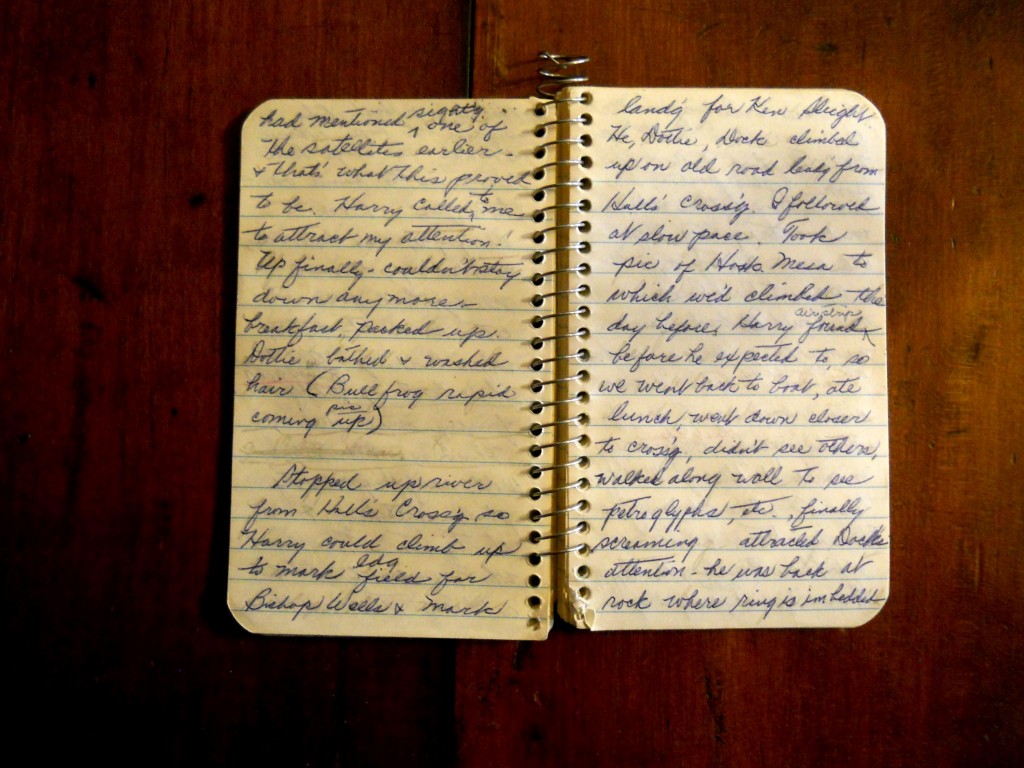 had mentioned sight'g
one of
the satellites earlier -
& that's what this proved
to be. Harry called to me
to attract my attention!
Up finally - couldn't stay
down anymore -
breakfast, packed up.
Dottie bathed & washed
hair (Bullfrog rapid
coming pic up)
Stopped up river
from Hall's Cross'g so
Harry could climb up
to mark ldg field for
Bishop Wells & mark
land'g for Ken Sleight.
He, Dottie, Dock climbed
up on old road lead'g from
Hall's cross'g. I followed
at slow pace. Took
pic of Hosk. Mesa to
which we'd climbed the
day before. Harry found airstrip
before he expected to, so
we went back to boat, ate
lunch, went down closer
to cross'g, didn't see others,
walked along wall to see
petroglyphs, etc., finally
screaming attracted Dock's
attention - he was back at
rock where ring is imbedded